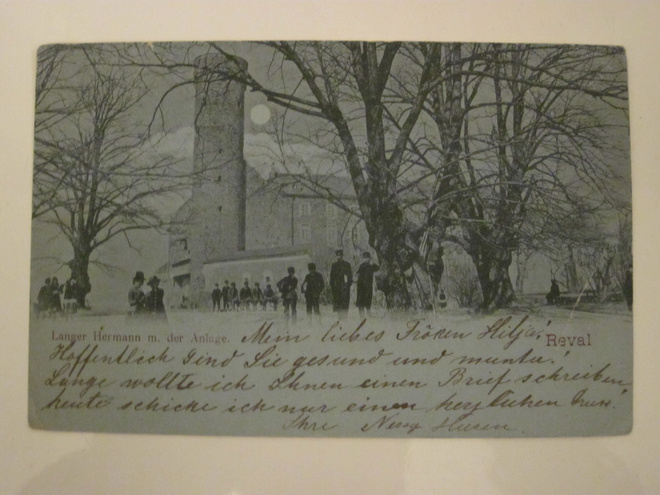 Langer Hermann m. der Anlage.
Reval
Mein liebes Fröken Hilja!
Hoffentlich sind Sie gesund und munter!
Lange wollte ich Ihnen einen Brief schreiben,
heute schicke ich nur einen herzlichen Gruss.
Ihre